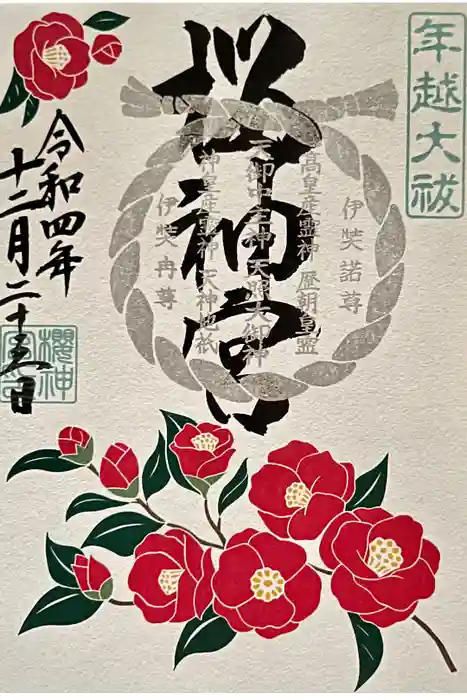 年越大祓
伊弉諾尊
高皇産霊神 歴朝皇霊
天御中主神 天照大御神
神皇産霊神 天神地祇
伊弉冉尊
桜神宮
令和四年
十二月二十五日
櫻神